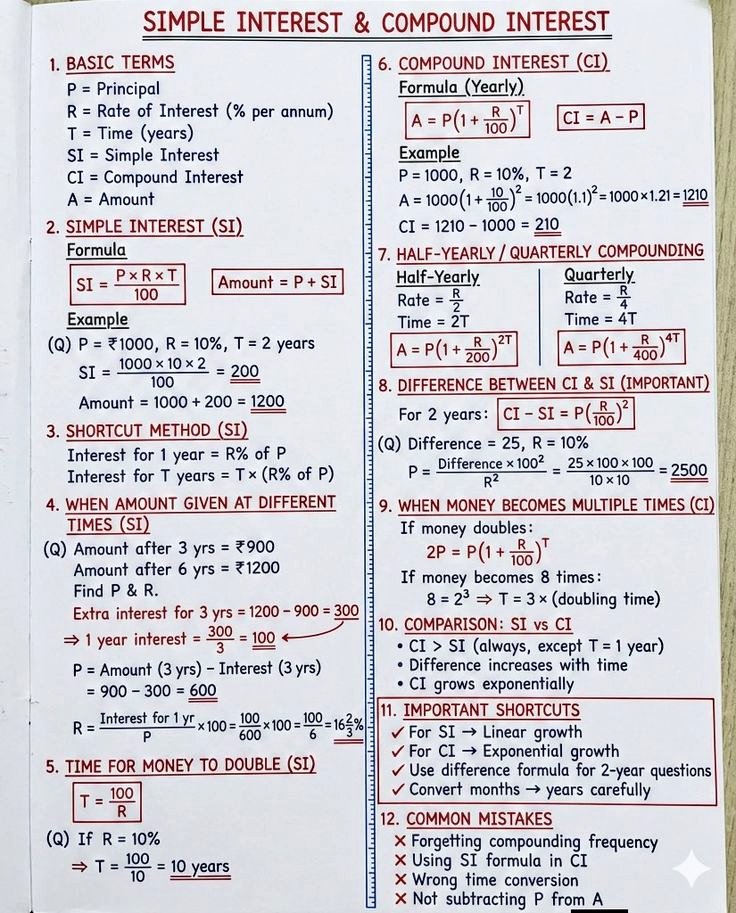 SIMPLE INTEREST & COMPOUND INTEREST
1. BASIC TERMS
P = Principal
R = Rate of Interest (% per annum)
T = Time (years)
SI = Simple Interest
CI = Compound Interest
A = Amount
2. SIMPLE INTEREST (SI)
Formula
SI = P × R × T / 100    Amount = P + SI
Example
(Q) P = ₹1000, R = 10%, T = 2 years
SI = 1000 × 10 × 2 / 100 = 200
Amount = 1000 + 200 = 1200
3. SHORTCUT METHOD (SI)
Interest for 1 year = R% of P
Interest for T years = T × (R% of P)
4. WHEN AMOUNT GIVEN AT DIFFERENT
TIMES (SI)
(Q) Amount after 3 yrs = ₹900
Amount after 6 yrs = ₹1200
Find P & R.
Extra interest for 3 yrs = 1200 − 900 = 300
⇒ 1 year interest = 300/3 = 100
P = Amount (3 yrs) − Interest (3 yrs)
= 900 − 300 = 600
R = Interest for 1 yr / P × 100 = 100/600 × 100 = 100/6 = 16 2/3 %
5. TIME FOR MONEY TO DOUBLE (SI)
T = 100/R
(Q) If R = 10%
⇒ T = 100/10 = 10 years
6. COMPOUND INTEREST (CI)
Formula (Yearly)
A = P(1 + R/100)^T    CI = A − P
Example
P = 1000, R = 10%, T = 2
A = 1000(1 + 10/100)² = 1000(1.1)² = 1000 × 1.21 = 1210
CI = 1210 − 1000 = 210
7. HALF-YEARLY / QUARTERLY COMPOUNDING
Half-Yearly    Quarterly
Rate = R/2    Rate = R/4
Time = 2T    Time = 4T
A = P(1 + R/200)^2T    A = P(1 + R/400)^4T
8. DIFFERENCE BETWEEN CI & SI (IMPORTANT)
For 2 years: CI − SI = P(R/100)²
(Q) Difference = 25, R = 10%
P = Difference × 100² / R² = 25 × 100 × 100 / 10 × 10 = 2500
9. WHEN MONEY BECOMES MULTIPLE TIMES (CI)
If money doubles:
2P = P(1 + R/100)^T
If money becomes 8 times:
8 = 2³ ⇒ T = 3 × (doubling time)
10. COMPARISON: SI vs CI
• CI > SI (always, except T = 1 year)
• Difference increases with time
• CI grows exponentially
11. IMPORTANT SHORTCUTS
✓ For SI → Linear growth
✓ For CI → Exponential growth
✓ Use difference formula for 2-year questions
✓ Convert months → years carefully
12. COMMON MISTAKES
✗ Forgetting compounding frequency
✗ Using SI formula in CI
✗ Wrong time conversion
✗ Not subtracting P from A